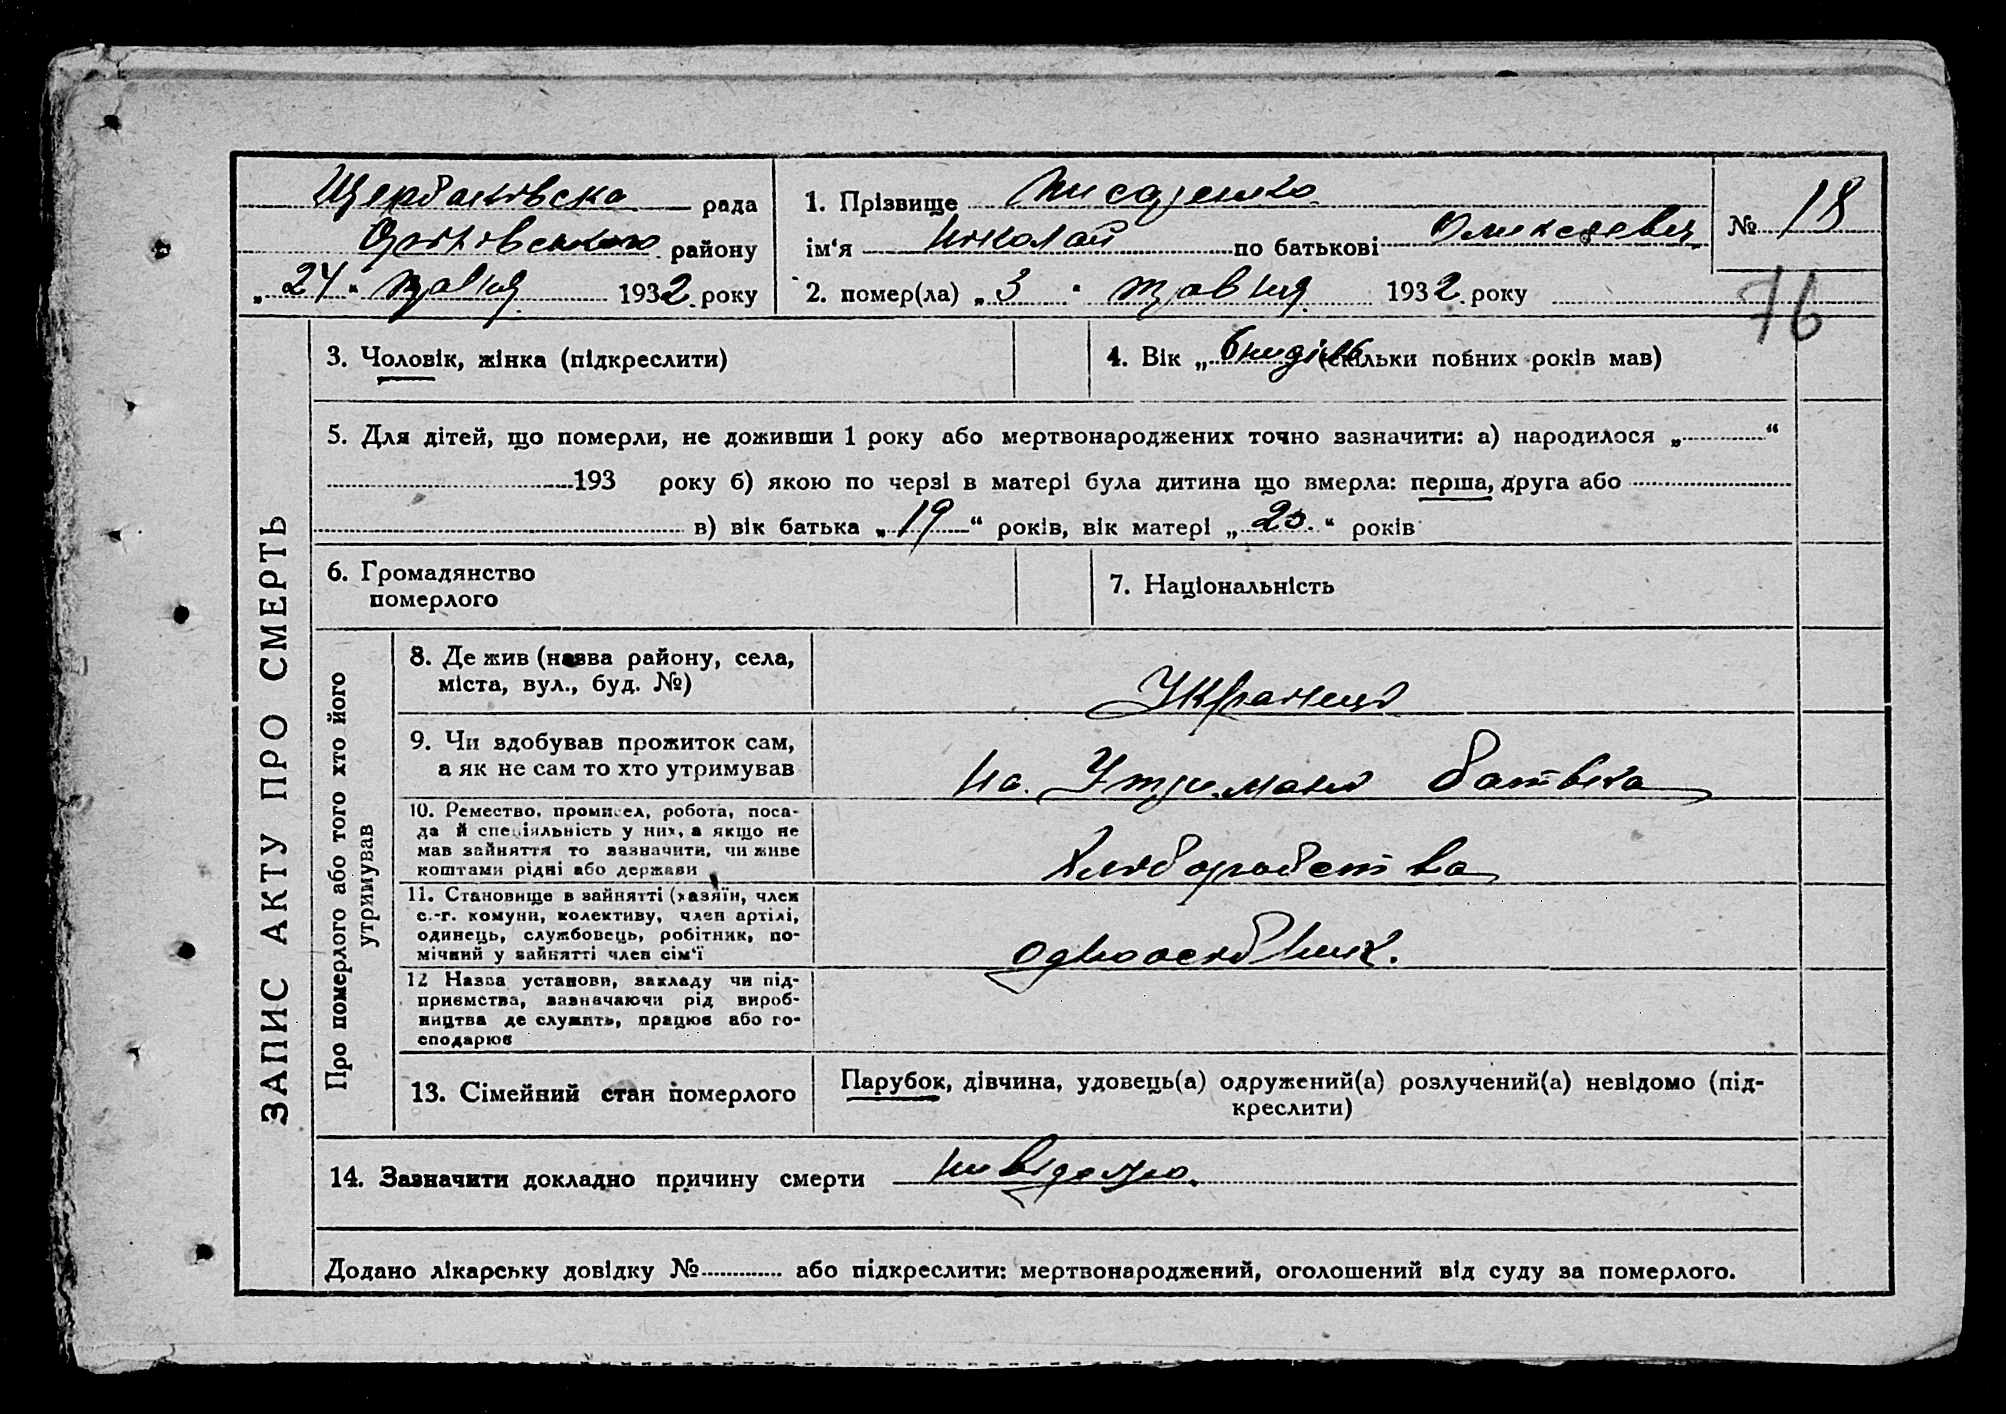 Щербаківська рада
району
„24“ травня 1932 року
1. Прізвище Писаренко
ім‘я Николай по батькові Оликсеевич
2. помер(ла) „3“ травня 1932 року
№ 18
76
ЗАПИС АКТУ ПРО СМЕРТЬ
3. Чоловік, жінка (підкреслити)
4. Вік „6 нидель (скільки повних років мав)
5. Для дітей, що померли, не доживши 1 року або мертвонароджених точно зазначити: а) народилося „ “
193 року б) якою по черзі в матері була дитина що вмерла: перша, друга або
в) вік батька „19“ років, вік матері „20“ років
6. Громадянство
померлого
7. Національність
Про померлого або того хто його
утримував
8. Де жив (назва району, села,
міста, вул., буд. №)
Українець
9. Чи здобував прожиток сам,
а як не сам то хто утримував
На Утримані батька
10. Ремество, промисел, робота, поса-
да й спеціяльність у них, а якщо не
мав зайняття то зазначити, чи живе
коштами рідні або держави
Хліборобства
11. Становище в зайнятті (хазяїн, член
с.-г. комуни, колективу, член артілі,
одинець, службовець, робітник, по-
мічний у зайнятті член сім‘ї
одноосібник.
12 Назва установи, закладу чи під-
приємства, зазначаючи рід вироб-
ництва де служить, працює або го-
сподарює
13. Сімейний стан померлого
Парубок, дівчина, удовець(а) одружений(а) розлучений(а) невідомо (під-
креслити)
14. Зазначити докладно причину смерти нивідомо.
Додано лікарську довідку № або підкреслити: мертвонароджений, оголошений від суду за померлого.